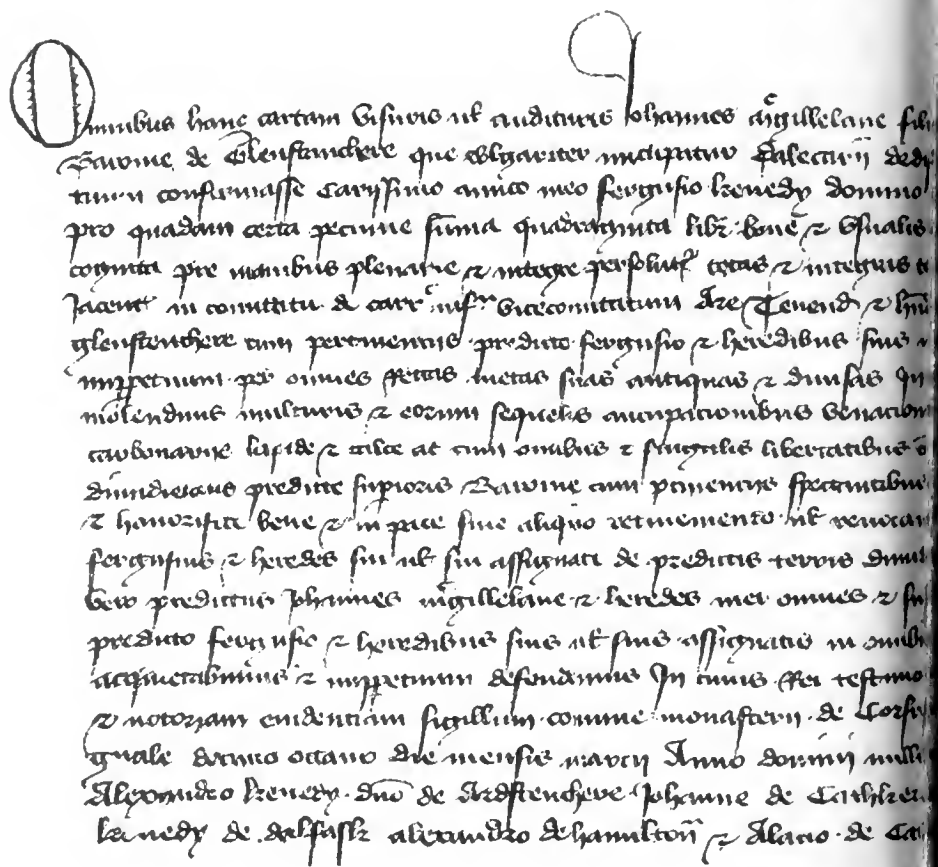 Omnibus hanc cartam visuris vel audituris Johannes mcgillelane fili
Baronie de Glenstenchere que wlgariter nuncupatur Dalectirii dedi
confirmasse carissimo amico meo fergusio kenedy domino
pro quadam certa pecunie suma quadraginta libr. bone & usualis
pre manibus plenarie & integre persolut totas & integras t
Jacent in comitatu de carrc infra vicecomitatum Are Tenend & hnd
glenstenchere cum pertinenciis predicto fergusio & heredibus suis
imppetuum per omnes rectas metas suas antiquas & diuisas In
molendinis multuris & eorum sequelis aucupacionibus venacion
carbonariis lapide & calce ac cum omnibus & singulis libertatibus
predicte superioris Baronie cum ptinenciis spectantibus
& honorifice bene & in pace sine aliquo retinemento vel reuocac
fergusius & heredes sui vel sui assignati de predictis terris dimid
vero predictus Johannes mcgillelane & heredes mei omnes & su
predicto fergusio & heredibus suis vel suis assignatis in omnib
acquietabimus & imppetuum defendemus In cuius Rei testimo
& notoriam euidenciam sigillum comune monasterii de Corsr
decimo octauo die mensis marcii Anno domini mill
Alexandro kenedy dno de Ardstenchere Johanne de
kenedy de dalfask alexandro de hamiltoñ & Alano de Cat